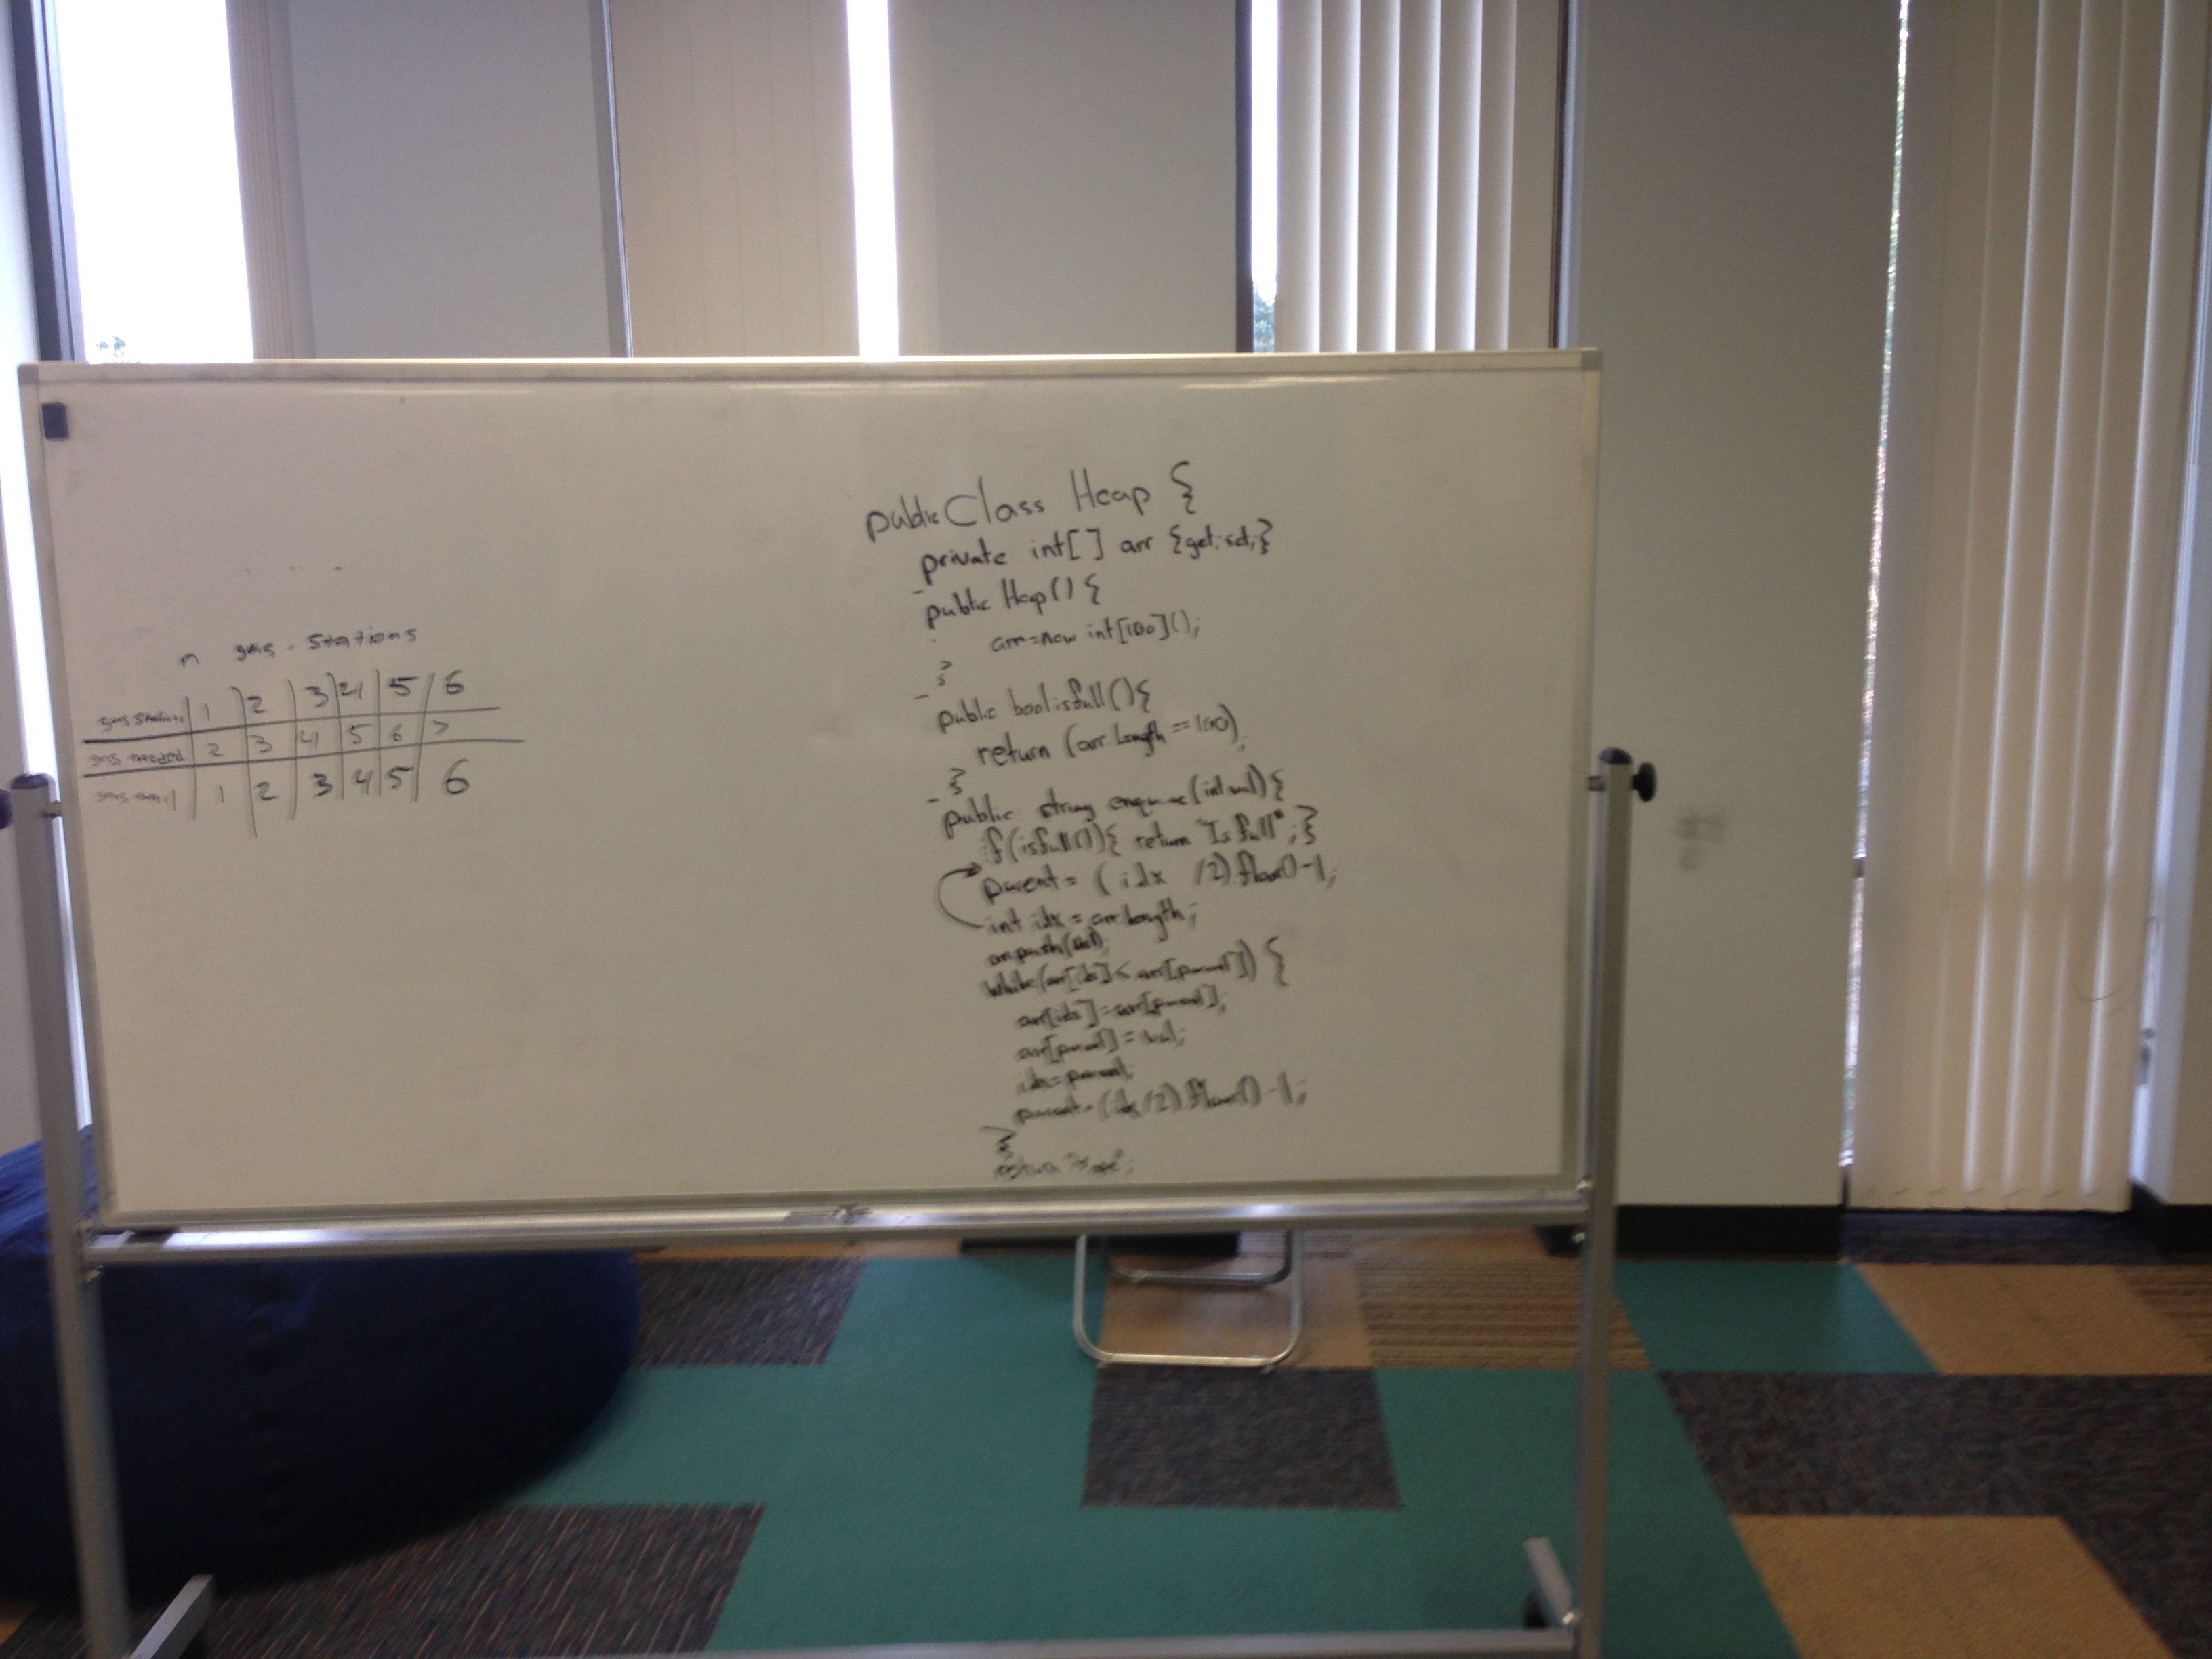 n gas stations
gas station 1 2 3 4 5 6
gas needed 2 3 4 5 6 7
1 2 3 4 5 6
public Class Heap {
private int[] arr {get; set;}
public Heap() {
arr=new int[100]();
}
public bool isfull(){
return (arr.Length == 100);
}
public string enqueue(int val){
if(isfull()){ return "Is full"; }
parent = (idx /2).floor()-1;
int idx = arr.Length;
arr.push(val);
while(arr[idx] < arr[parent]) {
arr[idx]=arr[parent];
arr[parent] = val;
idx=parent;
parent=(idx/2).floor()-1;
}
return